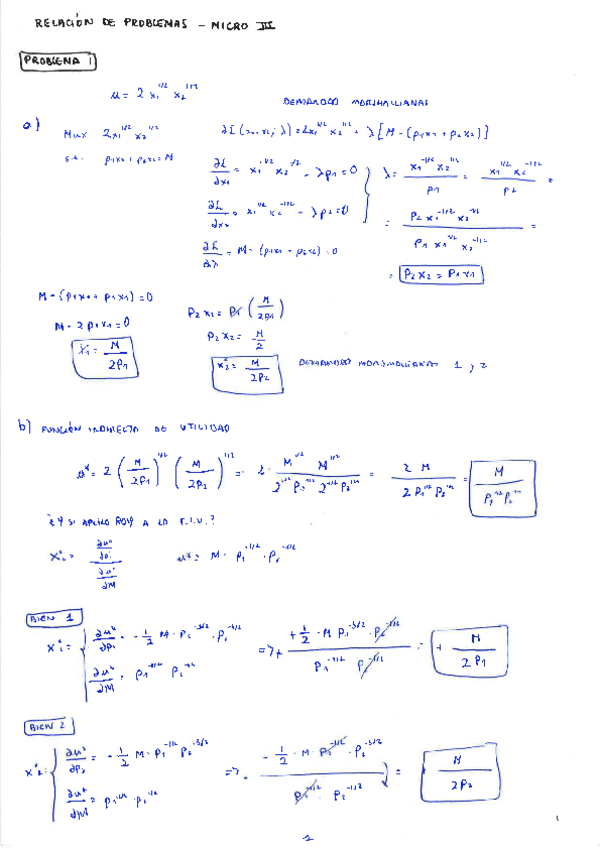 RELACIÓN DE PROBLEMAS - MICRO III
PROBLEMA 1
u = 2 x₁^1/2 x₂^1/2
DEMANDAS MARSHALLIANAS
a)
Max 2x₁^1/2 x₂^1/2
s.a. p₁x₁ + p₂x₂ = M
∂L (x₁, x₂; λ) = 2x₁^1/2 x₂^1/2 + λ[M - (p₁x₁ + p₂x₂)]
∂L/∂x₁ = x₁^-1/2 x₂^1/2 - λp₁ = 0
∂L/∂x₂ = x₁^1/2 x₂^-1/2 - λp₂ = 0
∂L/∂λ = M - (p₁x₁ - p₂x₂) = 0
λ = x₁^-1/2 x₂^1/2 / p₁ = x₁^1/2 x₂^-1/2 / p₂ =
= P₂ x₁^-1/2 x₂^1/2 / P₁ x₁^1/2 x₂^-1/2 =
= P₂x₂ = P₁x₁
M - (p₁x₁ + p₁x₁) = 0
M - 2p₁x₁ = 0
x₁ = M / 2p₁
P₂x₂ = p₁ (M / 2p₁)
P₂x₂ = M / 2
x₂* = M / 2p₂
DEMANDAS MARSHALLIANAS 1 y 2
b) FUNCIÓN INDIRECTA DE UTILIDAD
u* = 2 (M / 2p₁)^1/2 (M / 2p₂)^1/2 = 2 · M^1/2 M^1/2 / 2^1/2 P₁^1/2 2^1/2 P₂^1/2 = 2 M / 2 P₁^1/2 P₂^1/2 = M / P₁^1/2 P₂^1/2
¿Y SI APLICO ROY A LA F.I.U.?
xᵢ* = ∂u*/∂pᵢ / ∂u*/∂M
u* = M · p₁^-1/2 · p₂^-1/2
BIEN 1
x₁* = { ∂u*/∂p₁ = -1/2 M · P₁^-3/2 · P₂^-1/2
∂u*/∂M = p₁^-1/2 p₂^-1/2
=> + +1/2 · M p₁^-3/2 · p₂^-1/2 / p₁^-1/2 p₂^-1/2 = + M / 2p₁
BIEN 2
x₂* { ∂u*/∂p₂ = -1/2 M · p₁^-1/2 p₂^-3/2
∂u*/∂M = p₁^-1/2 · p₂^-1/2
=> - -1/2 · M · p₁^-1/2 · p₂^-3/2 / p₁^-1/2 · p₂^-1/2 = M / 2p₂
1